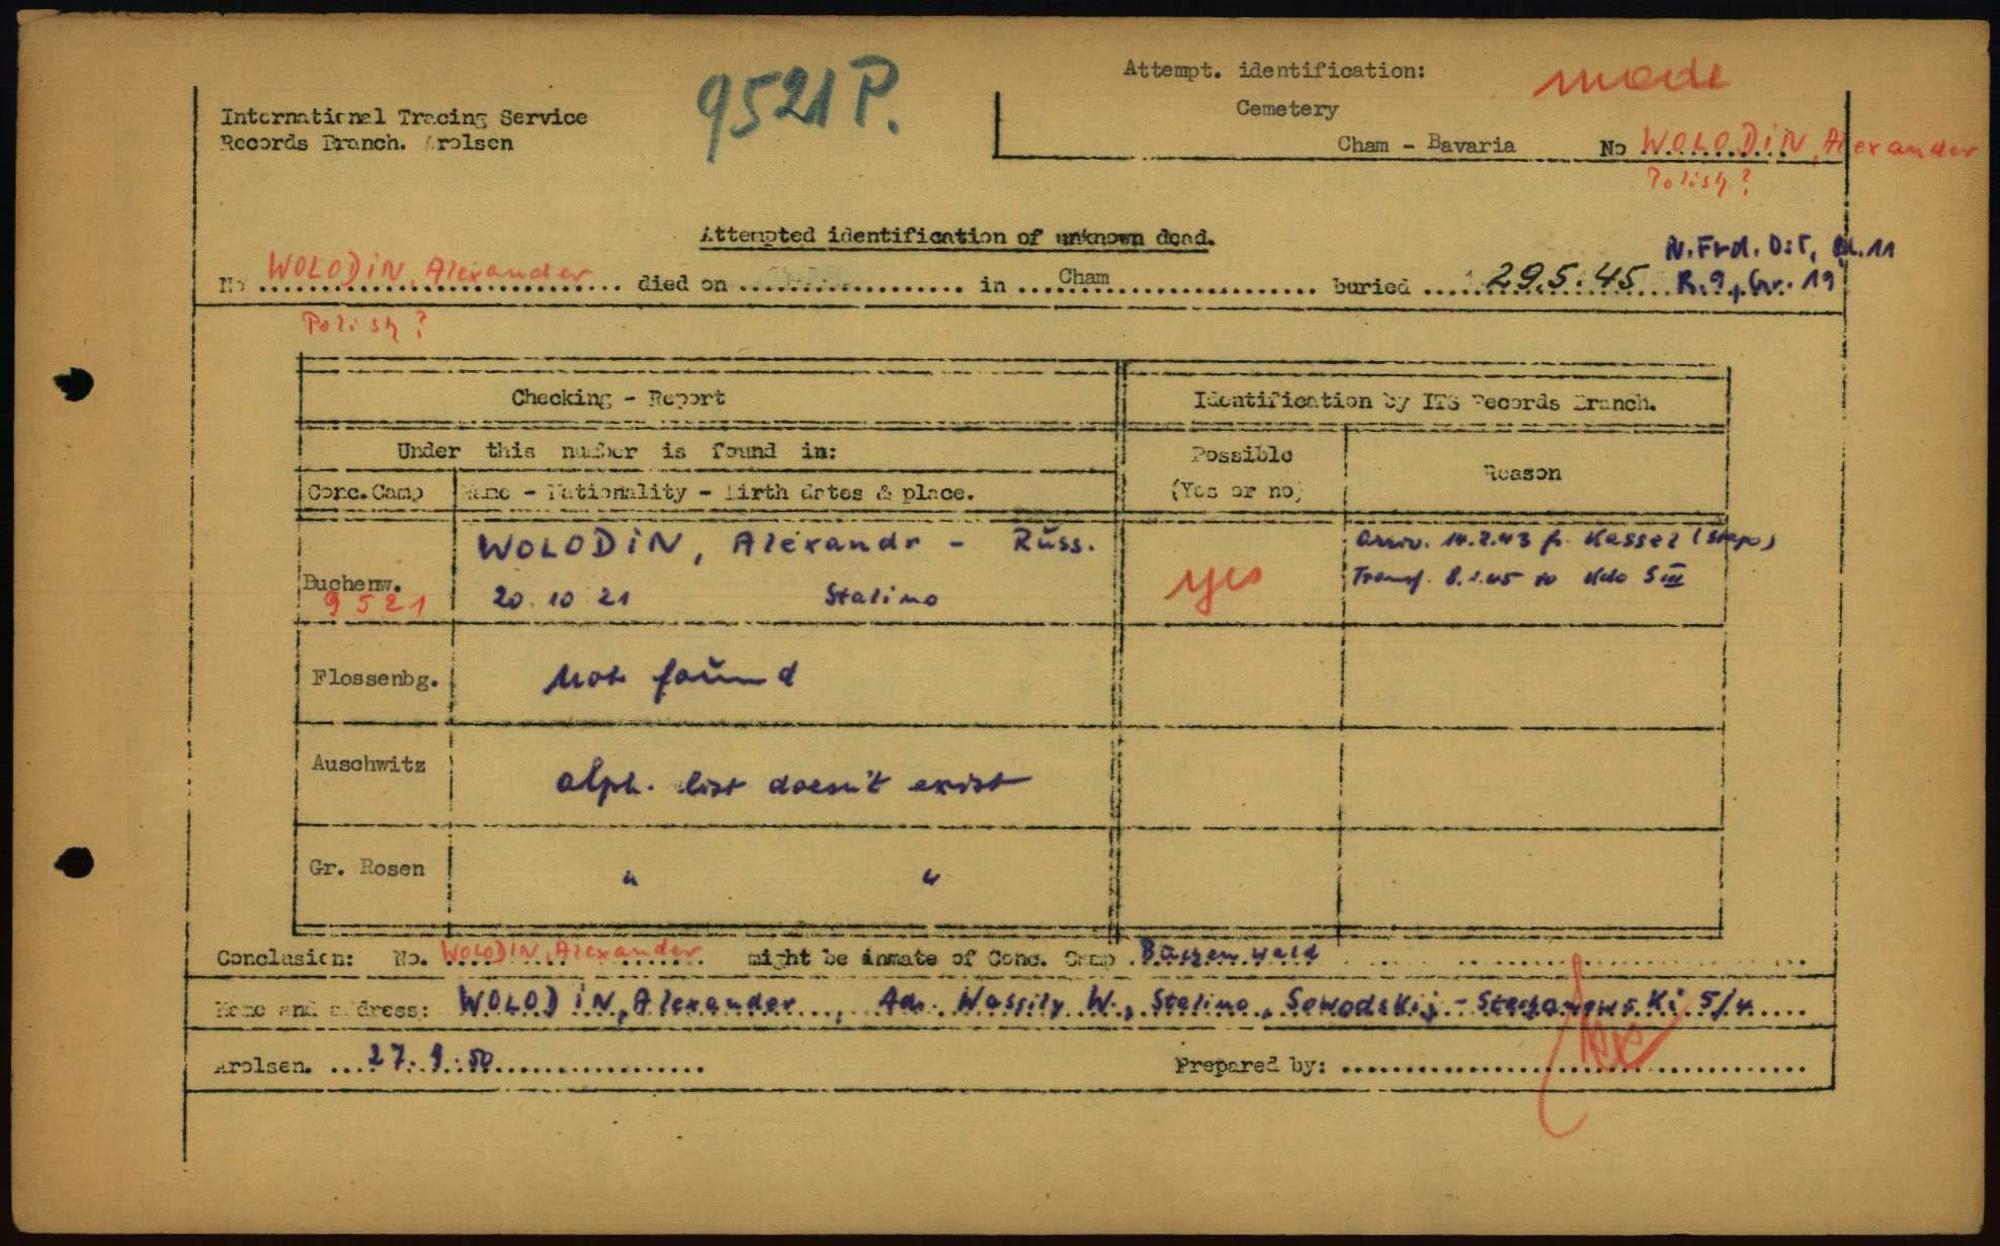 9521 P.
Attempt. identification: made
International Tracing Service
Records Branch. Arolsen
Cemetery
Cham - Bavaria No WOLODiN, Alexander
Polish?
Attempted identification of unknown dead.
N. Frd.
No WOLODiN, Alexander died on ........ in ... Cham ........ buried ... 29.5.45 R. 9, Gr. 19
Polish?
Checking - Report
Identification by ITS Records Branch.
Under this number is found in:
Possible
(Yes or no)
Reason
Conc. Camp
Name - Nationality - Birth dates & place.
Buchenw.
9521
WOLODiN, Alexandr - Rŭss.
20.10 21 Stalino
yes
arriv. 14.2.43 fr. Kassel (Stapo)
Transf. 8.1.45 to Kdo S III
Flossenbg. not foŭnd
Auschwitz alph. list doesn't exist
Gr. Rosen " "
Conclusion: No. WOLODIN, Alexander might be inmate of Conc. Camp Bŭchenwald
Name and address: WOLODiN, Alexander, Adr. Wassily W., Stalino, 5/4
Arolsen. 27.9.50 Prepared by: